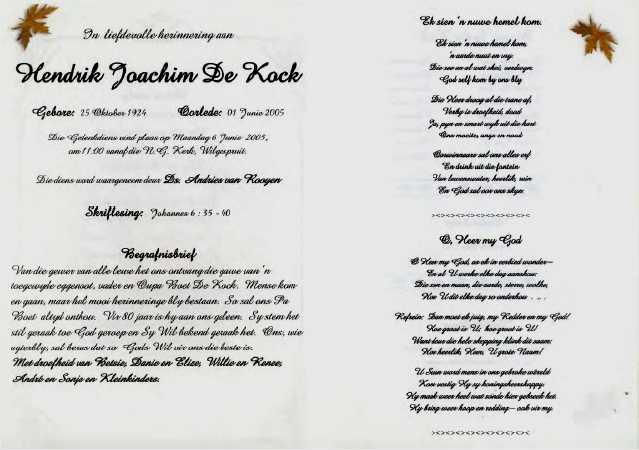 In liefdevolle herinnering aan
Hendrik Joachim De Kock
Gebore: 25 Oktober 1924 Oorlede: 01 Junie 2005
Die Gedenkdiens vind plaas op Maandag 6 Junie 2005,
om 11:00 vanaf die N.G. Kerk, Wilgespruit.
Die diens word waargeneem deur Ds. Andries van Rooyen
Skriflesing: Johannes 6 : 35 - 40
Begrafnisbrief
Van die gewer van alle lewe het ons ontvang die gawe van 'n
toegewyde eggenoot, vader en Oupa Boet De Kock. Mense kom
en gaan, maar hul mooi herinneringe bly bestaan. So sal ons Pa
Boet altyd onthou. Vir 80 jaar is hy aan ons geleen. Sy stem het
stil geraak toe God geroep en Sy Wil bekend geraak het. Ons, wie
agterbly, sal berus dat so Gods Wil vir ons die beste is.
Met droefheid van Betsie, Danie en Elize, Willie en Renee,
André en Sonja en Kleinkinders.
Ek sien 'n nuwe hemel kom.
Ek sien 'n nuwe hemel kom,
'n aarde nuut en vry:
Die see en al wat skei, verdwyn.
God self kom by ons bly
Die Heer droog al die trane af,
Verby is droefheid, dood
Ja, pyn en smart wyk uit die hart
Ons moeite, angs en nood
Oorwinnaars sal ons alles erf
En drink uit die fontein
Van lewenswater, heerlik, rein
En God sal oor ons skyn
><><><><><><><><><
O, Heer my God
O Heer my God, as ek in eerbied wonder—
En al U werke elke dag aanskou:
Die son en maan, die aarde, sterre, wolke,
Hoe U dit elke dag so onderhou ....
Refrein: Dan moet ek juig, my Redder en my God!
Hoe groot is U, hoe groot is U!
Want deur die hele skepping klink dit saam:
Hoe heerlik, Heer, U grote Naam!
U Seun word mens in ons gebroke wêreld
Kom vestig Hy sy koningsheerskappy.
Hy maak weer heel wat sonde hier gebreek het.
Hy bring weer hoop en redding— ook vir my.
><><><><><><><><><